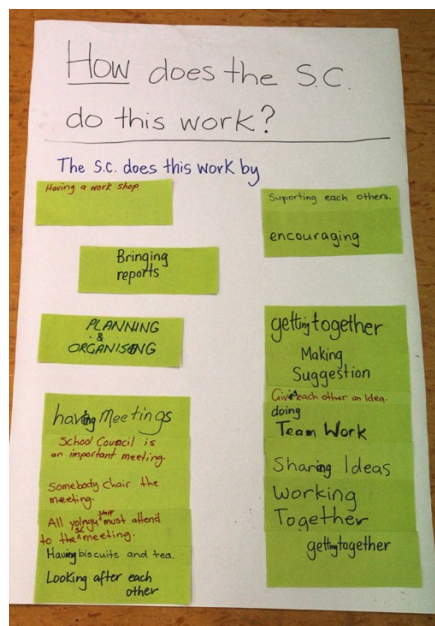 How does the S.C.
do this work?
The S.C. does this work by
Having a work shop.
Bringing
reports
PLANNING
&
ORGANISING
having Meetings
School Council is
an important meeting.
Somebody chair the
meeting.
All yolngu staff must attend
to the SC meeting.
Having biscuits and tea.
Looking after each
other
Suporting each others.
encouraging
getting together
Making
Suggestion
Giving each other an Idea.
doing
Team Work
Sharing Ideas
Working
Together
getting together